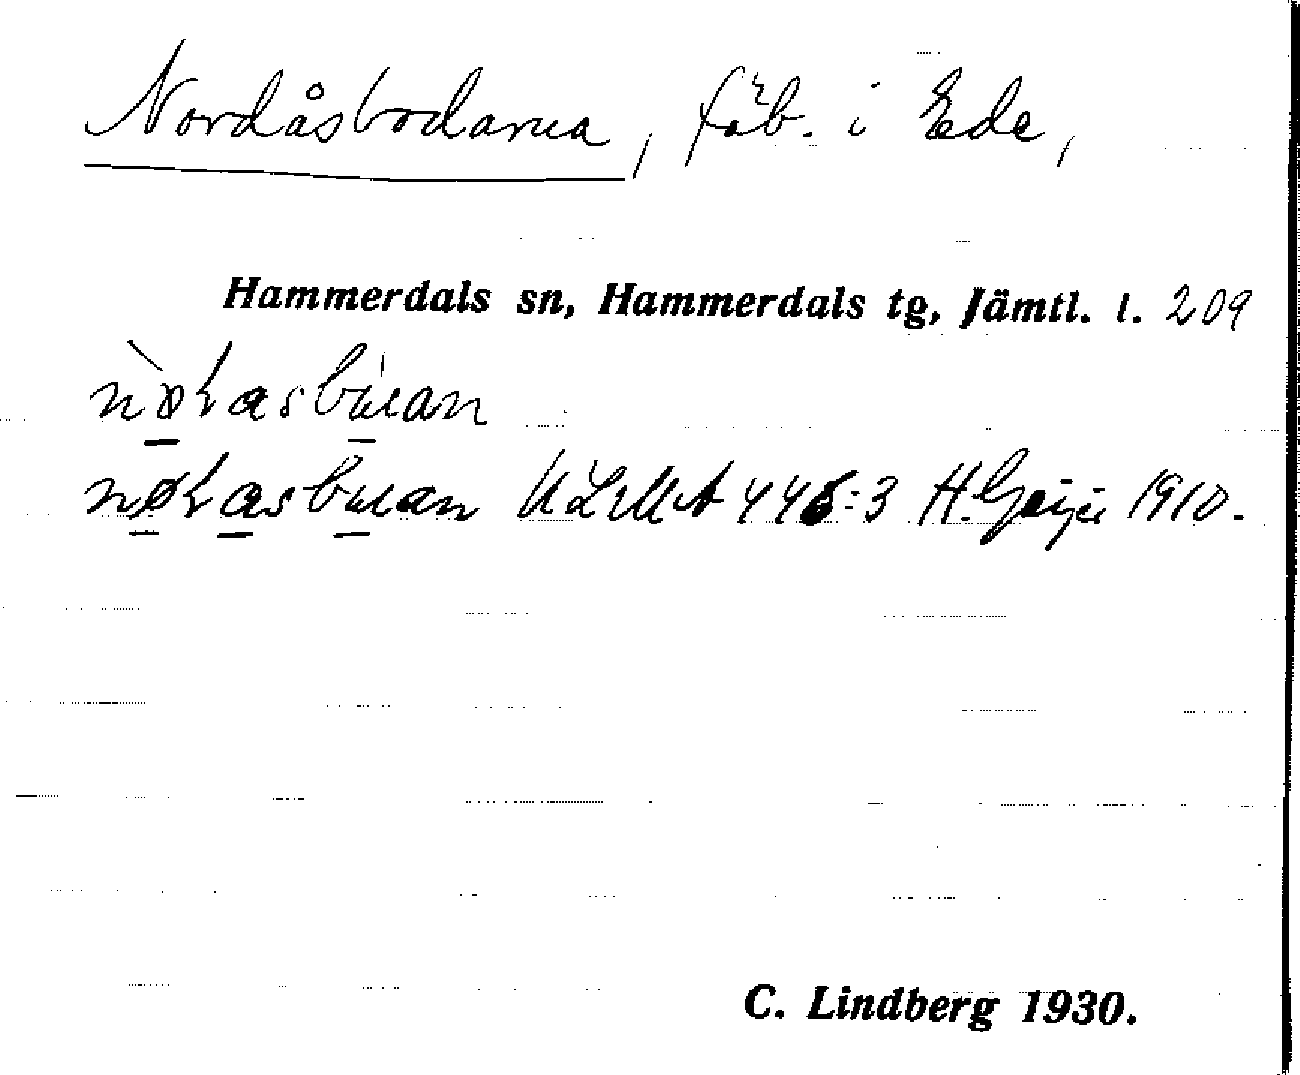 Nordåsbodarna, fäb. i Ede,
Hammerdals sn, Hammerdals tg, Jämtl. l. 209
ULMA 446:3 H. Geijer 1910.
C. Lindberg 1930.